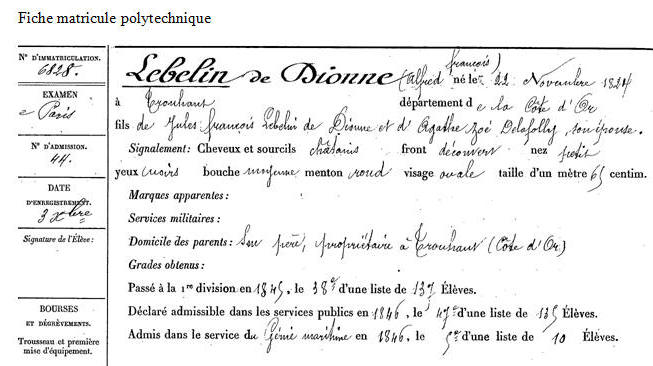 Fiche matricule polytechnique
N° D'IMMATRICULATION.
6828.
EXAMEN
de Paris
N° D'ADMISSION.
44.
DATE
D'ENREGISTREMENT.
3 Xbre
Signature de l'Élève :
BOURSES
ET DÉGRÈVEMENTS.
Trousseau et première
mise d'équipement.
Lebelin de Dionne (Alfred françois) né le 22 Novembre 1824
à Trouhaut département de la Côte d'Or
fils de Jules françois Lebelin de Dionne et d'Agathe Zoé Delafolly son épouse.
Signalement: Cheveux et sourcils châtains front découvert nez petit
yeux noirs bouche moyenne menton rond visage ovale taille d'un mètre 65 centim.
Marques apparentes :
Services militaires :
Domicile des parents : Son père, propriétaire à Trouhaut (Côte d'Or)
Grades obtenus :
Passé à la 1re division en 1845, le 38e d'une liste de 137 Élèves.
Déclaré admissible dans les services publics en 1846, le 47e d'une liste de 135 Élèves.
Admis dans le service du Génie maritime en 1846, le 5e d'une liste de 10 Élèves.